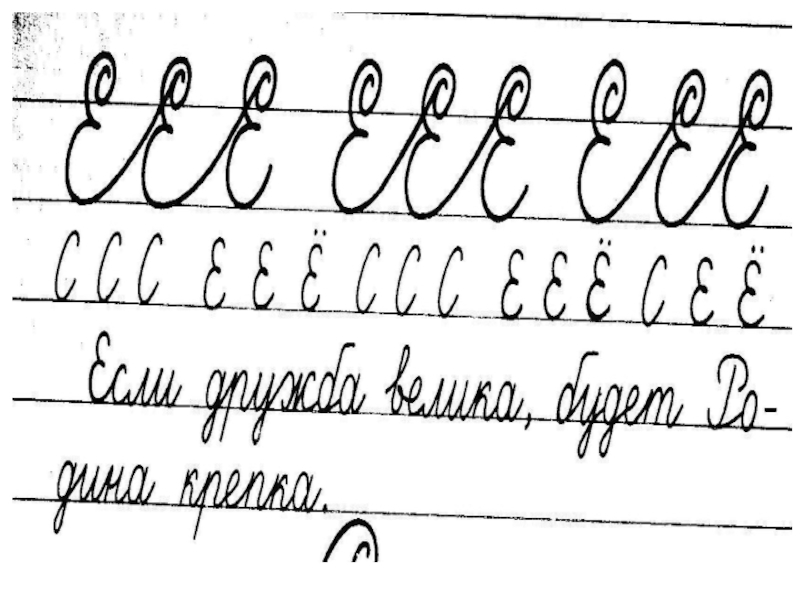 Е Е Е Е Е Е Е Е Е
С С С Е Е Ё С С С Е Е Ё С Е Ё
Если дружба велика, будет Ро-
дина крепка.